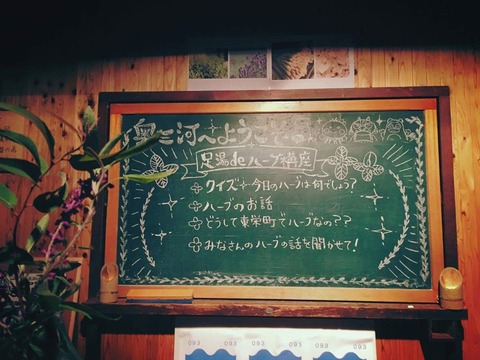 奥三河へようこそ
足湯deハーブ講座
クイズ 今日のハーブは何でしょう?
ハーブのお話
どうして東栄町でハーブなの??
みなさんのハーブの話を聞かせて!
093 093 093